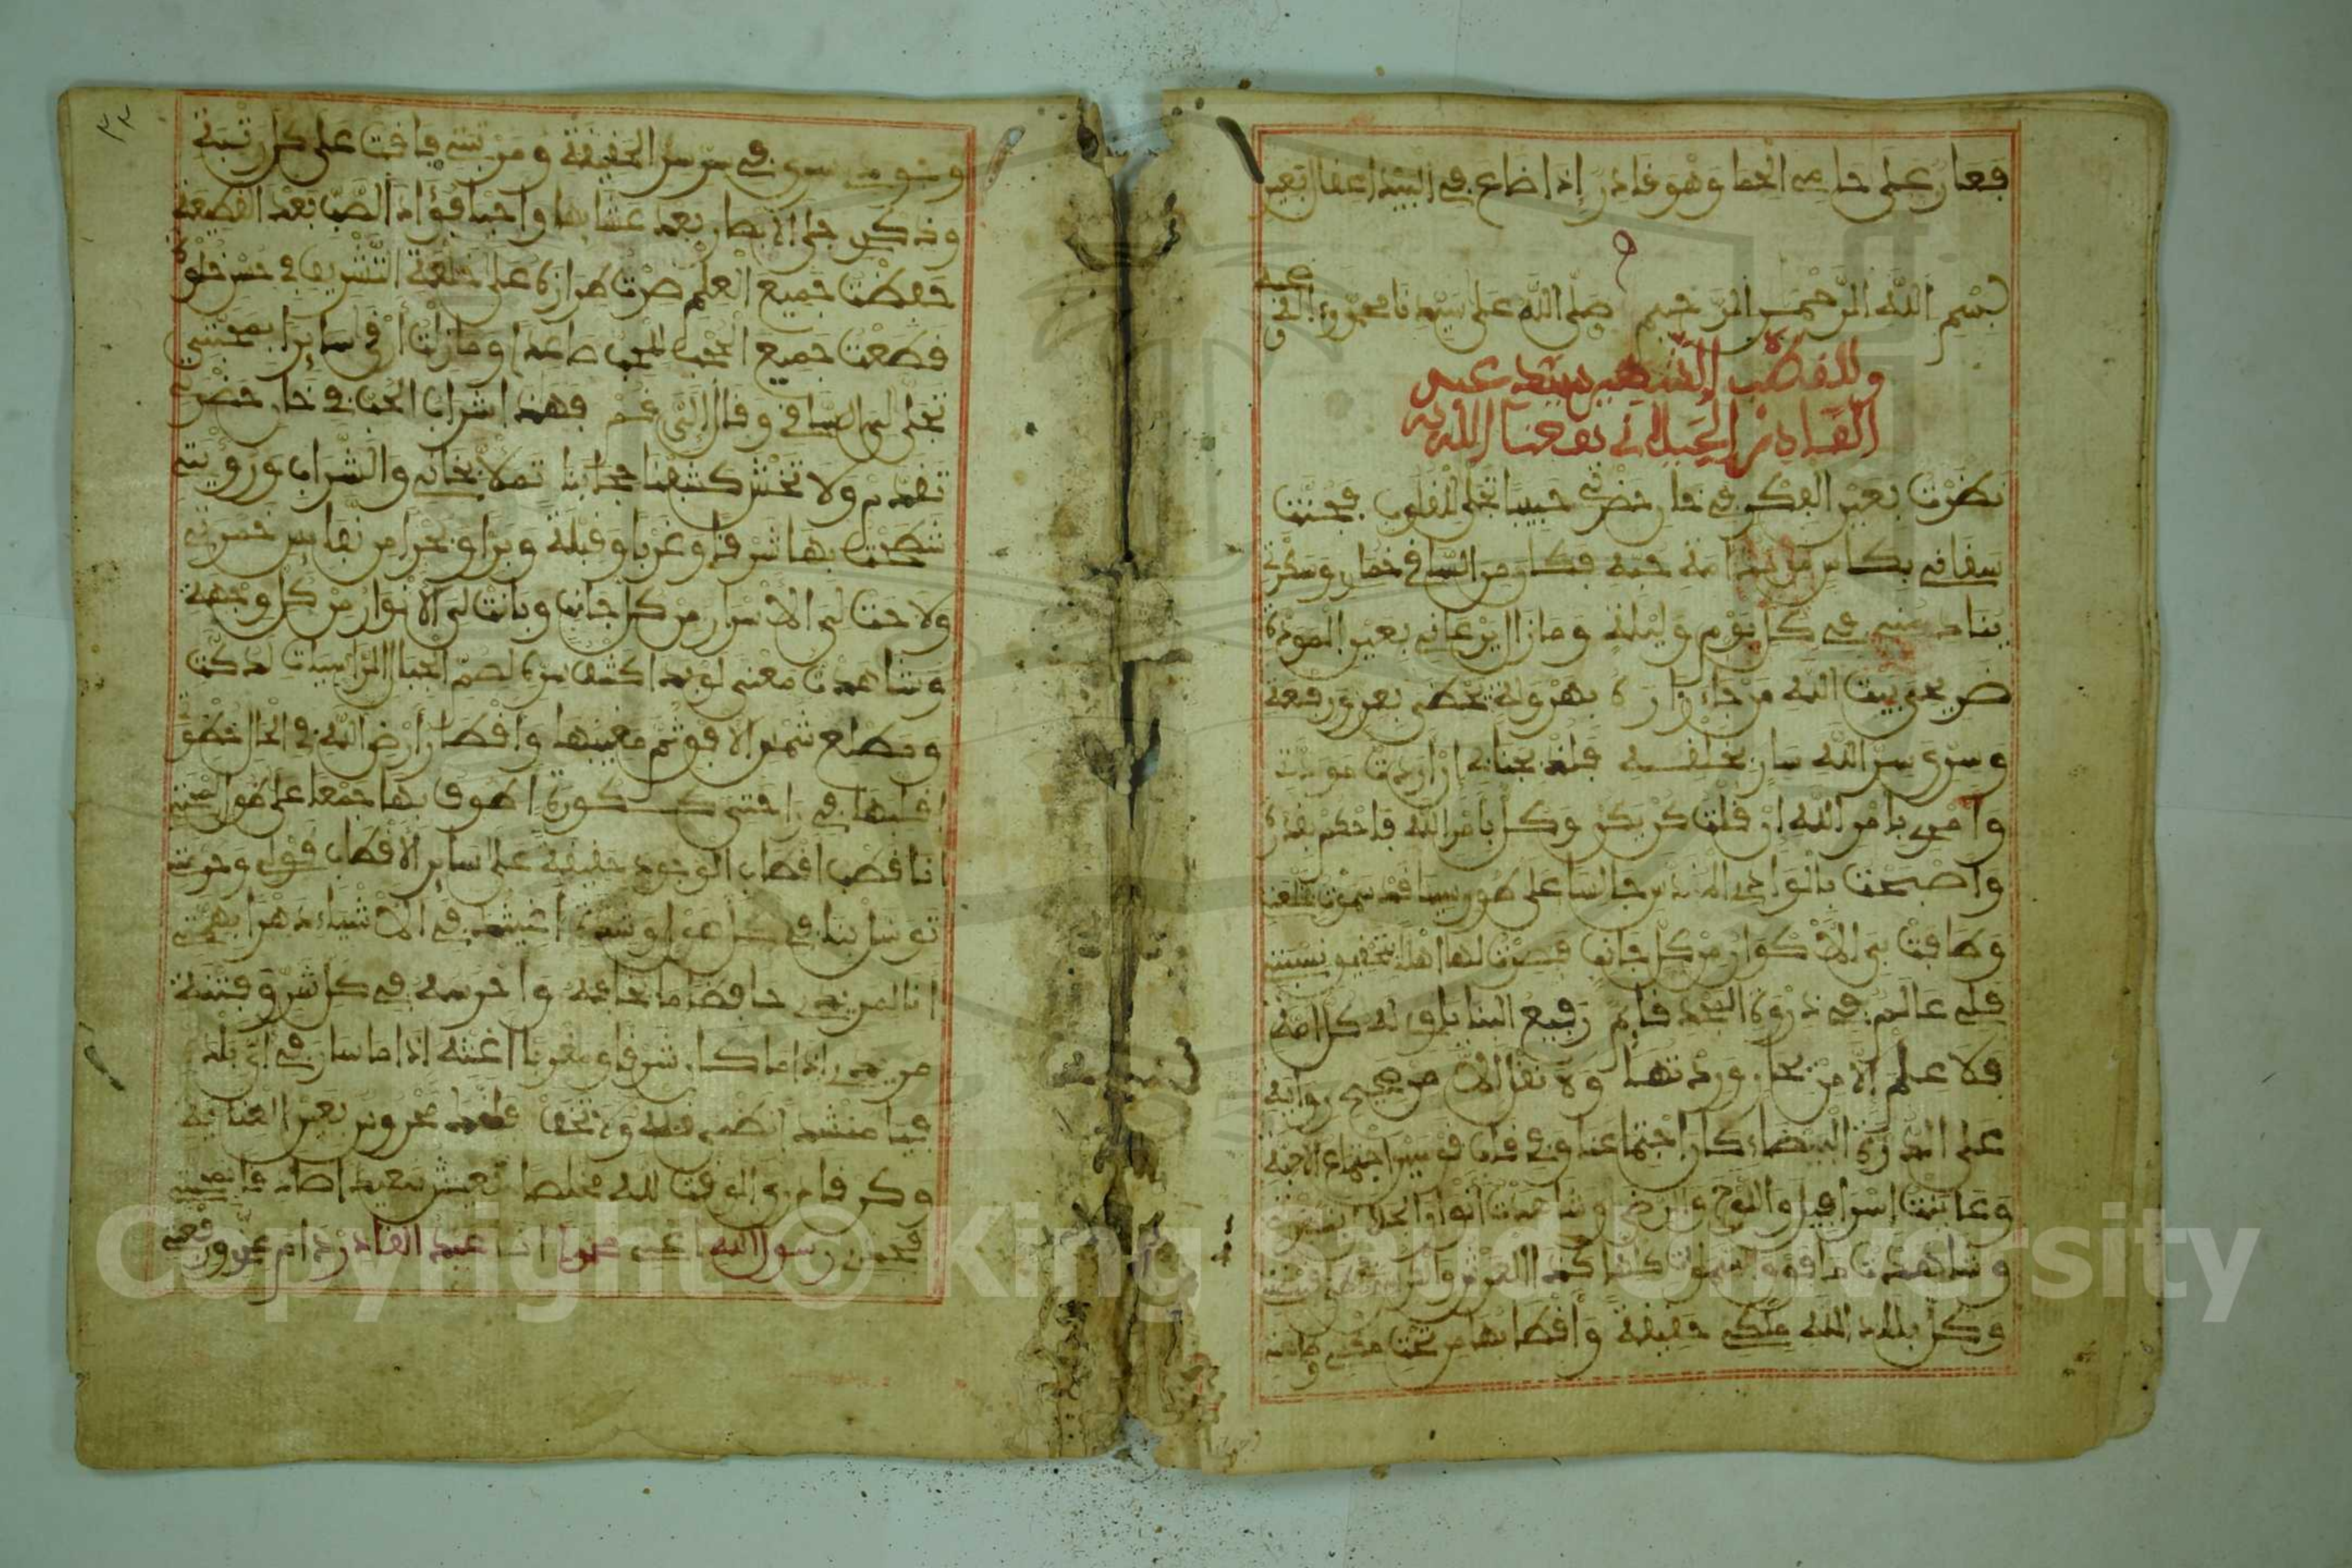 فعار على حامي الحما وهو قادر إذا ضاع في البيد اعقال بعير
بسم الله الرحمن الرحيم صلى الله على سيدنا محمد وءاله
وللقطب الشهير سيد عبد
القادر الجيلاني نفعنا الله به
نظرت بعين الفكر في حان حضرتي حبيبا تجلى للقلوب فحنت
سقاني بكاس من مدامة حبه فكان من الساقي خمار وسكرتي
ينادمني في كل يوم وليلة ومازال يرعاني بعين المودة
ضريحي بيت الله من جاء زاره بهرولة يحظى بعز ورفعة
وسري سر الله سار بخلقه فلذ بجنابي إن اردت مودتي
وامري بامر الله إن قلت كن يكن وكل بامر الله فاحكم بقدرة
واصبحت بالوادي المقدس جالسا على طور سينا قد سموت بخلعتي
وطافت بي الأكوان من كل جانب فصرت لها اهلا بتحقيق نسبتي
فلي علم في ذروة المجد قايم رفيع البنا ياوي له كل امة
فلا علم إلا من بحار وردتها ولا نقل إلا من صحيح روايتي
على الدرة البيضاء كان اجتماعنا وفي قاب قوسين اجتماع الاحبة
وعاينت اسرافيل واللوح والرضى وشاهدت انوار الجلال بنظرتي
وشاهدت ما فوق السموات كلها كذا العرش والكرسي في قبضتي
وكل بلاد الله ملكي حقيقة وأقطابها من تحت حكمي وطاعتي
٣٢
وجودي سرى في سر سر الحقيقة ومرتبتي فاقت على كل رتبة
وذكري جلى الابصار بعد عشايها واحيا فؤاد الصب بعد القطيعة
حفظت جميع العلم صرت طرازه على خلعة التشريف في حسن خلوة
قطعت جميع الحجب للحب صاعدا ومازلت أرقى سايرا بمحبتي
تجلى لي الساقي وقال إلي قم فهذا شراب الحب في حان حضرتي
تقدم ولا تخش كشفنا حجابنا تملا بحاني والشراب ورؤيتي
شطحت بها شرقا وغربا وقبلة وبرا وبحرا من نفايس خمرتي
ولاحت لي الأسرار من كل جانب وبانت لي الأنوار من كل وجهة
وشاهدت معنى لو بدا كشف سره لصم الجبال الراسيات لدكت
ومطلع شمس الافق ثم مغيبها واقطار أرض الله في الحال خطوتي
اقلبها في راحتي ككورة اطوف بها جمعا على طول لمحتي
انا قطب اقطاب الوجود حقيقة على ساير الاقطاب قولي وحرمتي
توسل بنا في كل هول وشدة اغيثك في الأشياء دهرا بهمتي
انا لمريدي حافظ ما يخافه واحرسه في كل شر وفتنة
مريدي إذا ما كان شرقا ومغربا اغثه اذا ما سار في اي بلدة
فيا منشدا نظمي فقله ولا تخف فانك محروس بعين العناية
وكن قادري الوقت لله مخلصا تعيش سعيدا صادقا بمحبتي
فجدي رسول الله اعني محمدا انا عبد القادر دام عزي ورفعتي
Copyright © King Saud University